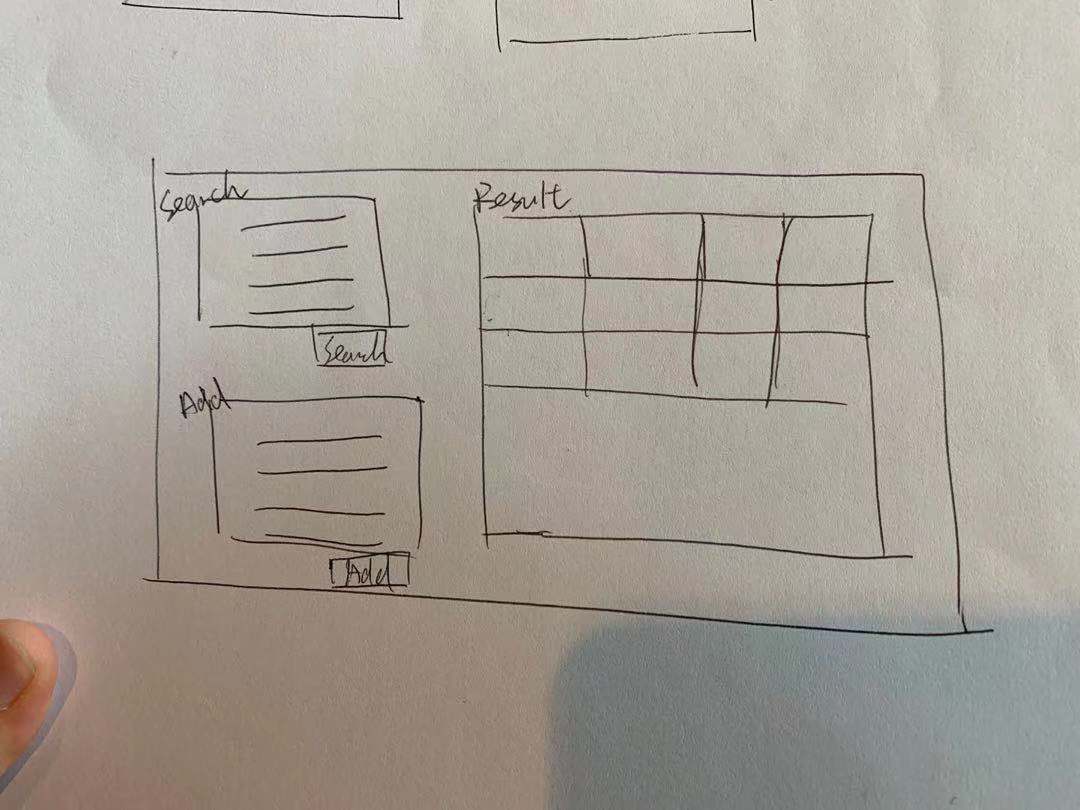 Search
Search
Add
Add
Result